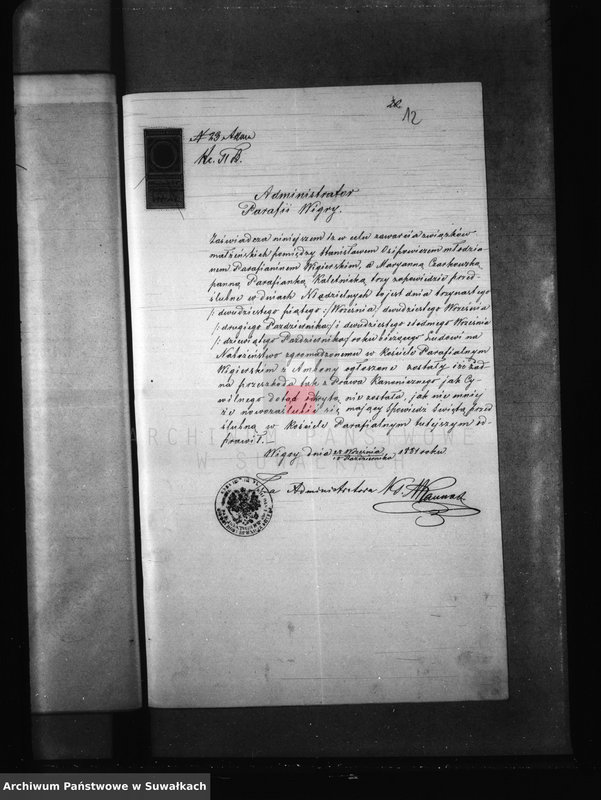 20.
12
N 23 Adm
Kc. 71 B.
Administrator
Parafii Wigry.
Zaświadcza niniejszem iż w celu zawarcia związków
małżeńskich pomiędzy Stanisławem Osipowiczem młodzia-
nem Parafianem Wigierskim, a Maryanną Czaskowską
panną Parafianką Kaletnicką trzy zapowiedzie przed-
ślubne w dniach Niedzielnych to jest dnia trzynastego
/: dwudziestego piątego :/ Września, dwudziestego Września
/: drugiego Października :/ i dwudziestego siódmego Września
/: dziewiątego Października :/ roku bieżącego Ludowi na
Nabożeństwo zgromadzonemu w Kościele Parafialnym
Wigierskim z Ambony ogłoszone zostały iż żad
na przeszkoda tak z Prawa Kanonicznego jak Cy-
wilnego dotąd odkrytą nie została, jak nie mniej
że nowozaślubić się mający Spowiedź Świętą przed
ślubną w Kościele Parafialnym tutejszym od-
prawił.
Wigry dnia 27 Września / 9 Października 1881 roku
Za Administratora Ks.
ARCHIWUM PAŃSTWOWE
W SUWAŁKACH
Archiwum Państwowe w Suwałkach